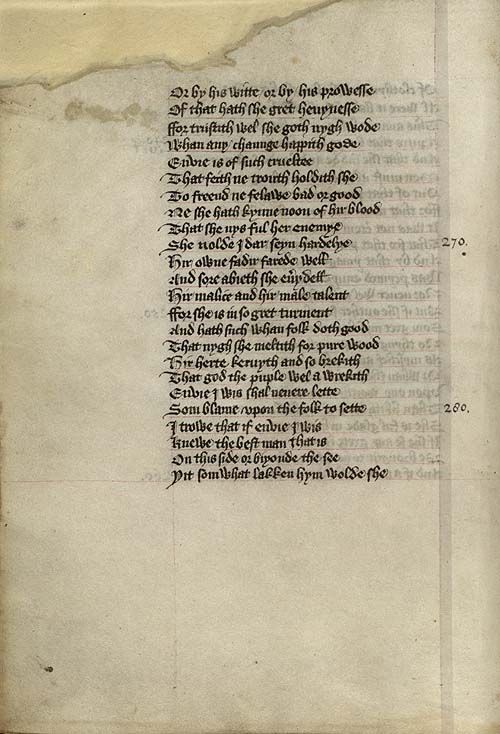 Or by his witte or by his prowesse
Of that hath she gret heuynesse
ffor trustith wel she goth nygh wode
Whan any chaunge happith gode
Envie is of such crueltee
That feith ne trouth holdith she
To freend ne felawe bad or good
Ne she hath kynne noon of hir blood
That she nys ful her enemye
She nolde I dar seyn hardelye 270.
Hir owne fadir farede well
And sore abieth she eu'ydell
Hir malice and hir male talent
ffor she is in so gret turment
And hath such whan folk doth good
That nygh she meltith for pure wood
Hir herte keruyth and so brekith
That god the puple wel a wrekith
Envie I wis shal neuere lette
Som blame vpon the folk to sette 280.
I trowe that if envie I wis
Knewe the best man that is
On this side or biyonde the see
Yit somwhat lakken hym wolde she